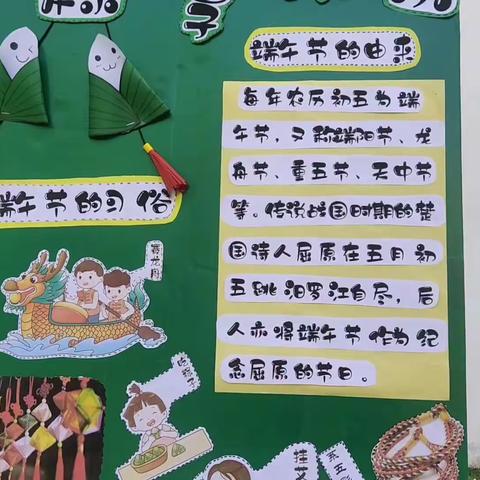 子
端午节的由来
每年农历初五为端
午节，又称端阳节、龙
舟节、重五节、天中节
等。传说战国时期的楚
国诗人屈原在五月初
五跳汨罗江自尽，后
人亦将端午节作为纪
念屈原的节日。
端午节的习俗
赛龙舟
挂艾
系五